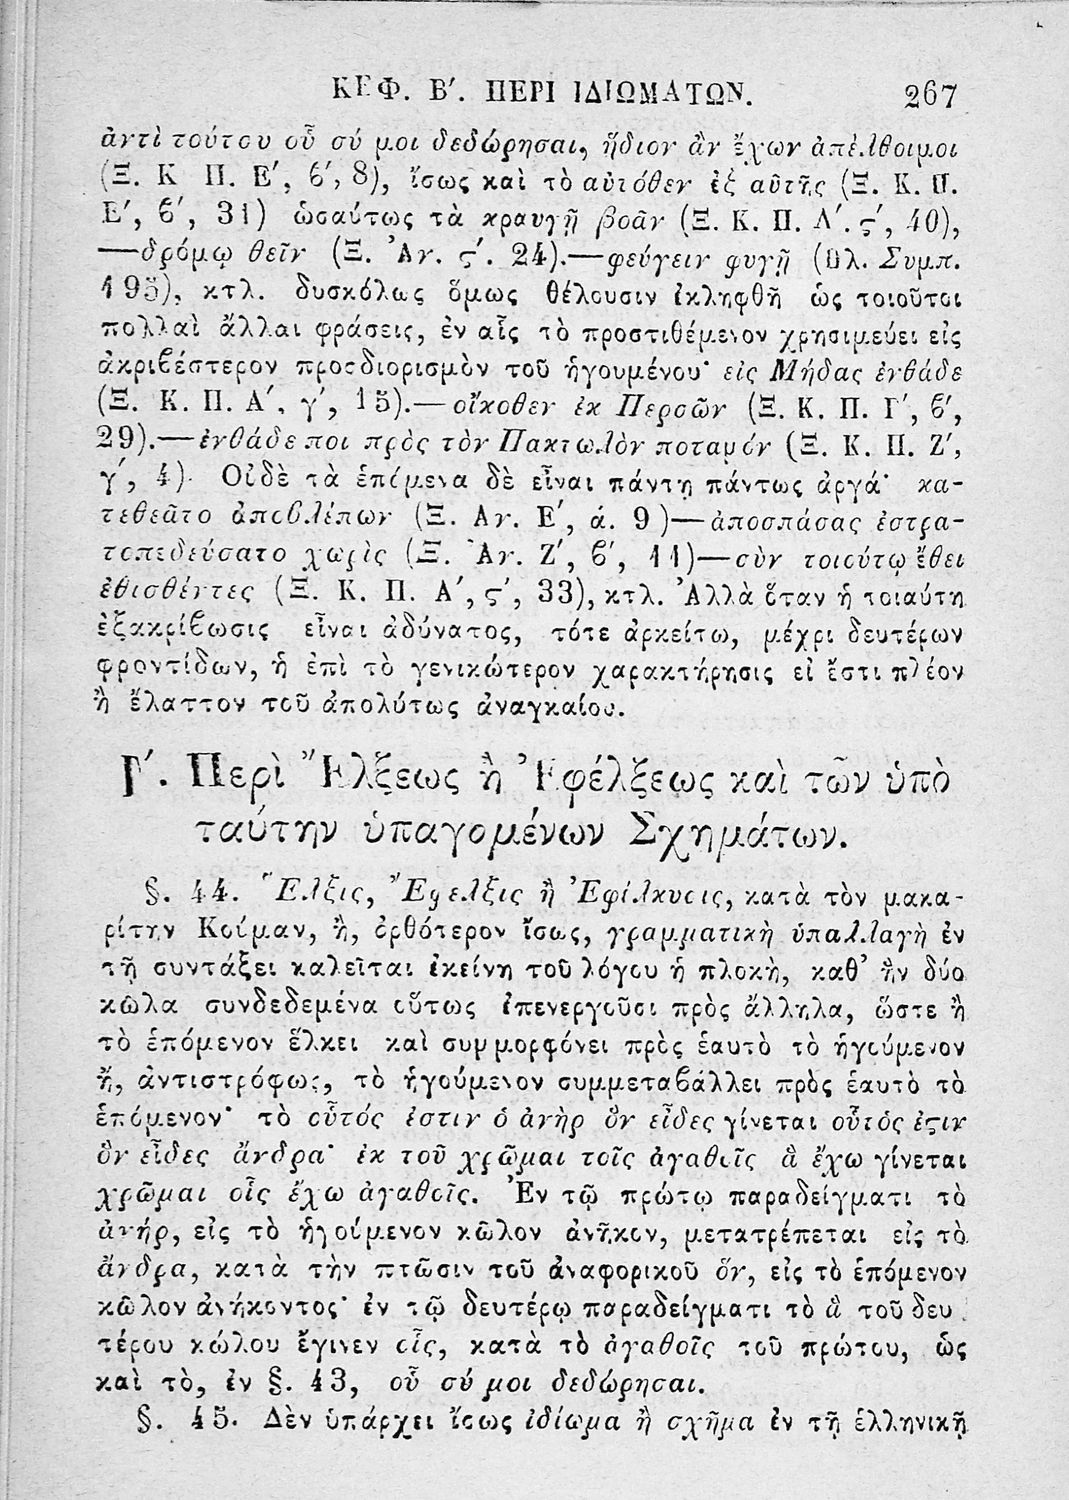 ΚΕΦ. Β′. ΠΕΡΙ ΙΔΙΩΜΑΤΩΝ. 267
ἀντὶ τούτου οὗ σύ μοι δεδώρησαι, ἥδιον ἂν ἔχων ἀπέλθοιμι
(Ξ. Κ Π. Ε′, β′, 8), ἴσως καὶ τὸ αὐτόθεν ἐξ αὐτῆς (Ξ. Κ. Π.
Ε′, β′, 31) ὡσαύτως τὰ κραυγῇ βοᾶν (Ξ. Κ. Π. Λ′. ϛ′, 40),
—δρόμῳ θεῖν (Ξ. Ἀν. ϛ′. 24).—φεύγειν φυγῇ (Πλ. Συμπ.
195), κτλ. δυσκόλως ὅμως θέλουσιν ἐκληφθῆ ὡς τοιοῦτοι
πολλαὶ ἄλλαι φράσεις, ἐν αἷς τὸ προστιθέμενον χρησιμεύει εἰς
ἀκριβέστερον προσδιορισμὸν τοῦ ἡγουμένου· εἰς Μήδας ἐνθάδε
(Ξ. Κ. Π. Α′. γ′, 15).—οἴκοθεν ἐκ Περσῶν (Ξ. Κ. Π. Γ′, β′,
29).—ἐνθάδε ποι πρὸς τὸν Πακτωλὸν ποταμόν (Ξ. Κ. Π. Ζ′,
γ′, 4). Οὐδὲ τὰ ἑπόμενα δὲ εἶναι πάντῃ πάντως ἀργά· κα-
τεθεᾶτο ἀποβλέπων (Ξ. Αν. Ε′, ά. 9)—ἀποσπάσας ἐστρα-
τοπεδεύσατο χωρὶς (Ξ. Ἀν. Ζ′, β′, 11)—σὺν τοιούτῳ ἔθει
ἐθισθέντες (Ξ. Κ. Π. Α′, ϛ′, 33), κτλ. Ἀλλὰ ὅταν ἡ τοιαύτη
ἐξακρίβωσις εἶναι ἀδύνατος, τότε ἀρκείτω, μέχρι δευτέρων
φροντίδων, ἡ ἐπὶ τὸ γενικώτερον χαρακτήρησις εἰ ἔστι πλέον
ἢ ἔλαττον τοῦ ἀπολύτως ἀναγκαίου.
Γ′. Περὶ Ἕλξεως ἢ Ἐφέλξεως καὶ τῶν ὑπὸ
ταύτην ὑπαγομένων Σχημάτων.
§. 44. Ἕλξις, Ἔφελξις ἢ Ἐφέλκυσις, κατὰ τὸν μακα-
ρίτην Κούμαν, ἢ, ὀρθότερον ἴσως, γραμματικὴ ὑπαλλαγὴ ἐν
τῇ συντάξει καλεῖται ἐκείνη τοῦ λόγου ἡ πλοκὴ, καθ’ ἣν δύο
κῶλα συνδεδεμένα οὕτως ἐπενεργοῦσι πρὸς ἄλληλα, ὥστε ἢ
τὸ ἑπόμενον ἕλκει καὶ συμμορφόνει πρὸς ἑαυτὸ τὸ ἡγούμενον
ἤ, ἀντιστρόφως, τὸ ἡγούμενον συμμεταβάλλει πρὸς ἑαυτὸ τὸ
ἑπόμενον· τὸ οὗτός ἐστιν ὁ ἀνὴρ ὃν εἶδες γίνεται οὗτός ἐςιν
ὃν εἶδες ἄνδρα· ἐκ τοῦ χρῶμαι τοῖς ἀγαθοῖς ἃ ἔχω γίνεται
χρῶμαι οἷς ἔχω ἀγαθοῖς. Ἐν τῷ πρώτῳ παραδείγματι τὸ
ἀνήρ, εἰς τὸ ἡγούμενον κῶλον ἀνῆκον, μετατρέπεται εἰς τὸ
ἄνδρα, κατὰ τὴν πτῶσιν τοῦ ἀναφορικοῦ ὅν, εἰς τὸ ἑπόμενον
κῶλον ἀνήκοντος· ἐν τῷ δευτέρῳ παραδείγματι τὸ ἃ τοῦ δευ
τέρου κώλου ἔγινεν οἷς, κατὰ τὸ ἀγαθοῖς τοῦ πρώτου, ὡς
καὶ τὸ, ἐν §. 43, οὗ σύ μοι δεδώρησαι.
§. 45. Δὲν ὑπάρχει ἴσως ἰδίωμα ἢ σχῆμα ἐν τῇ ἑλληνικῇ